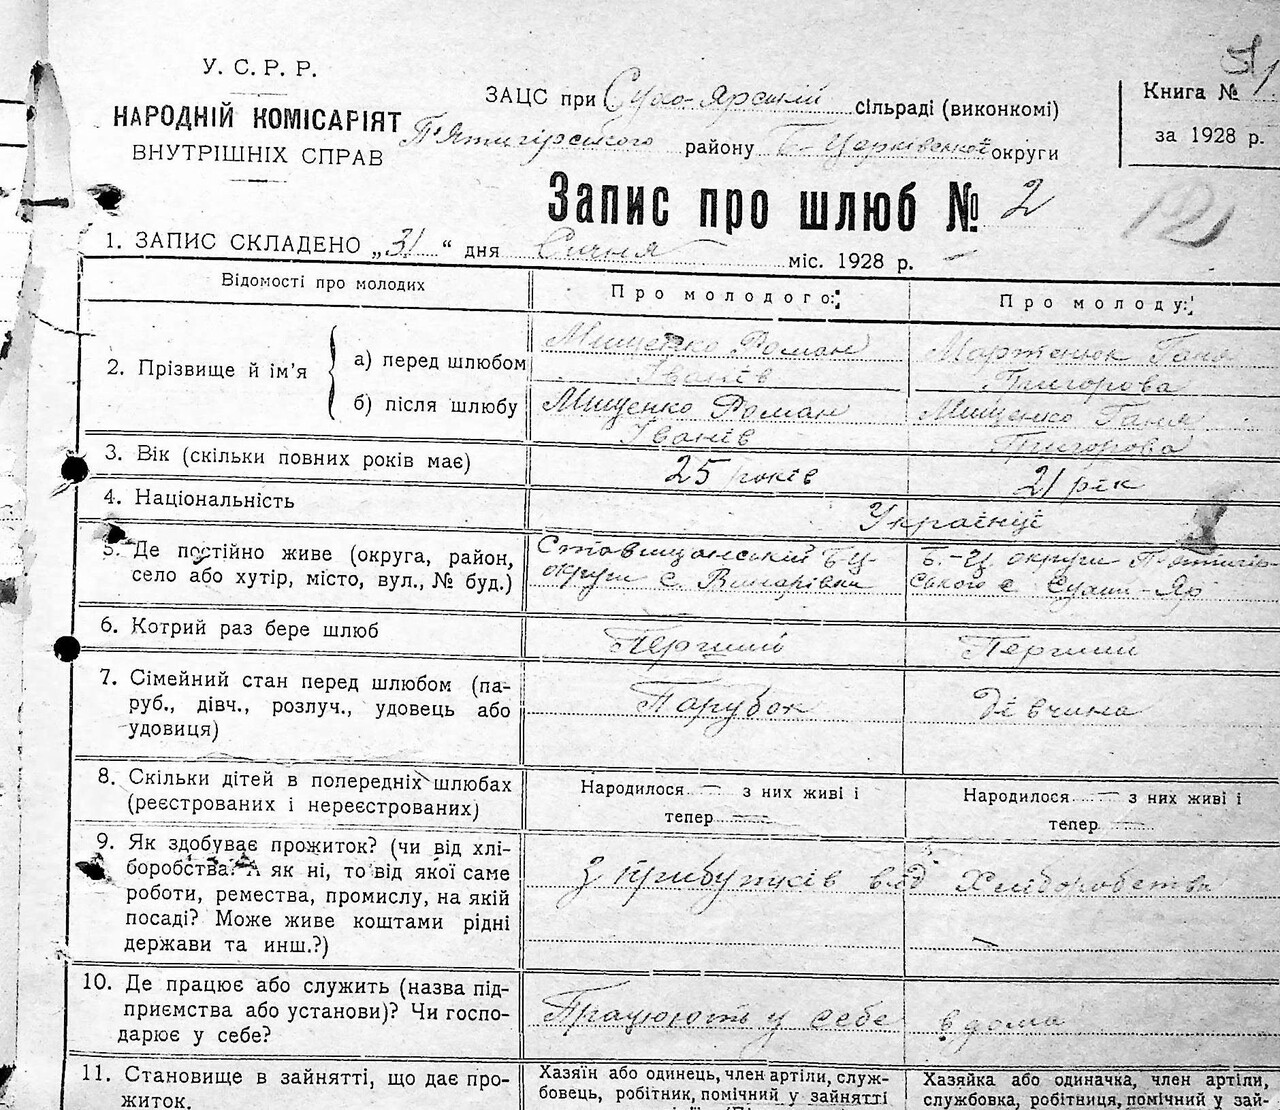 У. С. Р. Р.
НАРОДНІЙ КОМІСАРІЯТ
ВНУТРІШНІХ СПРАВ
ЗАЦС при Сухо-Ярській сільраді (виконкомі)
П'ятигірського району Б-Церківської округи
Книга № 
за 1928 р.
Запис про шлюб № 2
1. ЗАПИС СКЛАДЕНО „31“ дня Січня міс. 1928 р.
Відомості про молодих
Про молодого:
Про молоду:
2. Прізвище й ім'я
а) перед шлюбом
Мищенко Роман
Іванів
Мартенюк Ганя
Григорова
б) після шлюбу
Мищенко Роман
Іванів
Мищенко Ганя
Григорова
3. Вік (скільки повних років має)
25 років
21 рік
4. Національність
Українці
5. Де постійно живе (округа, район,
село або хутір, місто, вул., № буд.)
Ставищанський Б-Ц
округи с. Винарівки
Б.-Ц округи П'ятигір-
ського с Сухий-Яр
6. Котрий раз бере шлюб
Перший
Перший
7. Сімейний стан перед шлюбом (па-
руб., дівч., розлуч., удовець або
удовиця)
Парубок
дівчина
8. Скільки дітей в попередніх шлюбах
(реєстрованих і нереєстрованих)
Народилося — з них живі і
тепер —
Народилося — з них живі і
тепер —
9. Як здобуває прожиток? (чи від хлі-
боробства? А як ні, то від якої саме
роботи, ремества, промислу, на якій
посаді? Може живе коштами рідні
держави та инш.?)
з прибутків від Хліборобства
10. Де працює або служить (назва під-
приємства або установи)? Чи госпо-
дарює у себе?
Працюють у себе вдома
11. Становище в зайнятті, що дає про-
житок.
Хазяїн або одинець, член артіли, служ-
бовець, робітник, помічний у зайнятті
Хазяйка або одиначка, член артіли,
службовка, робітниця, помічний у зай-